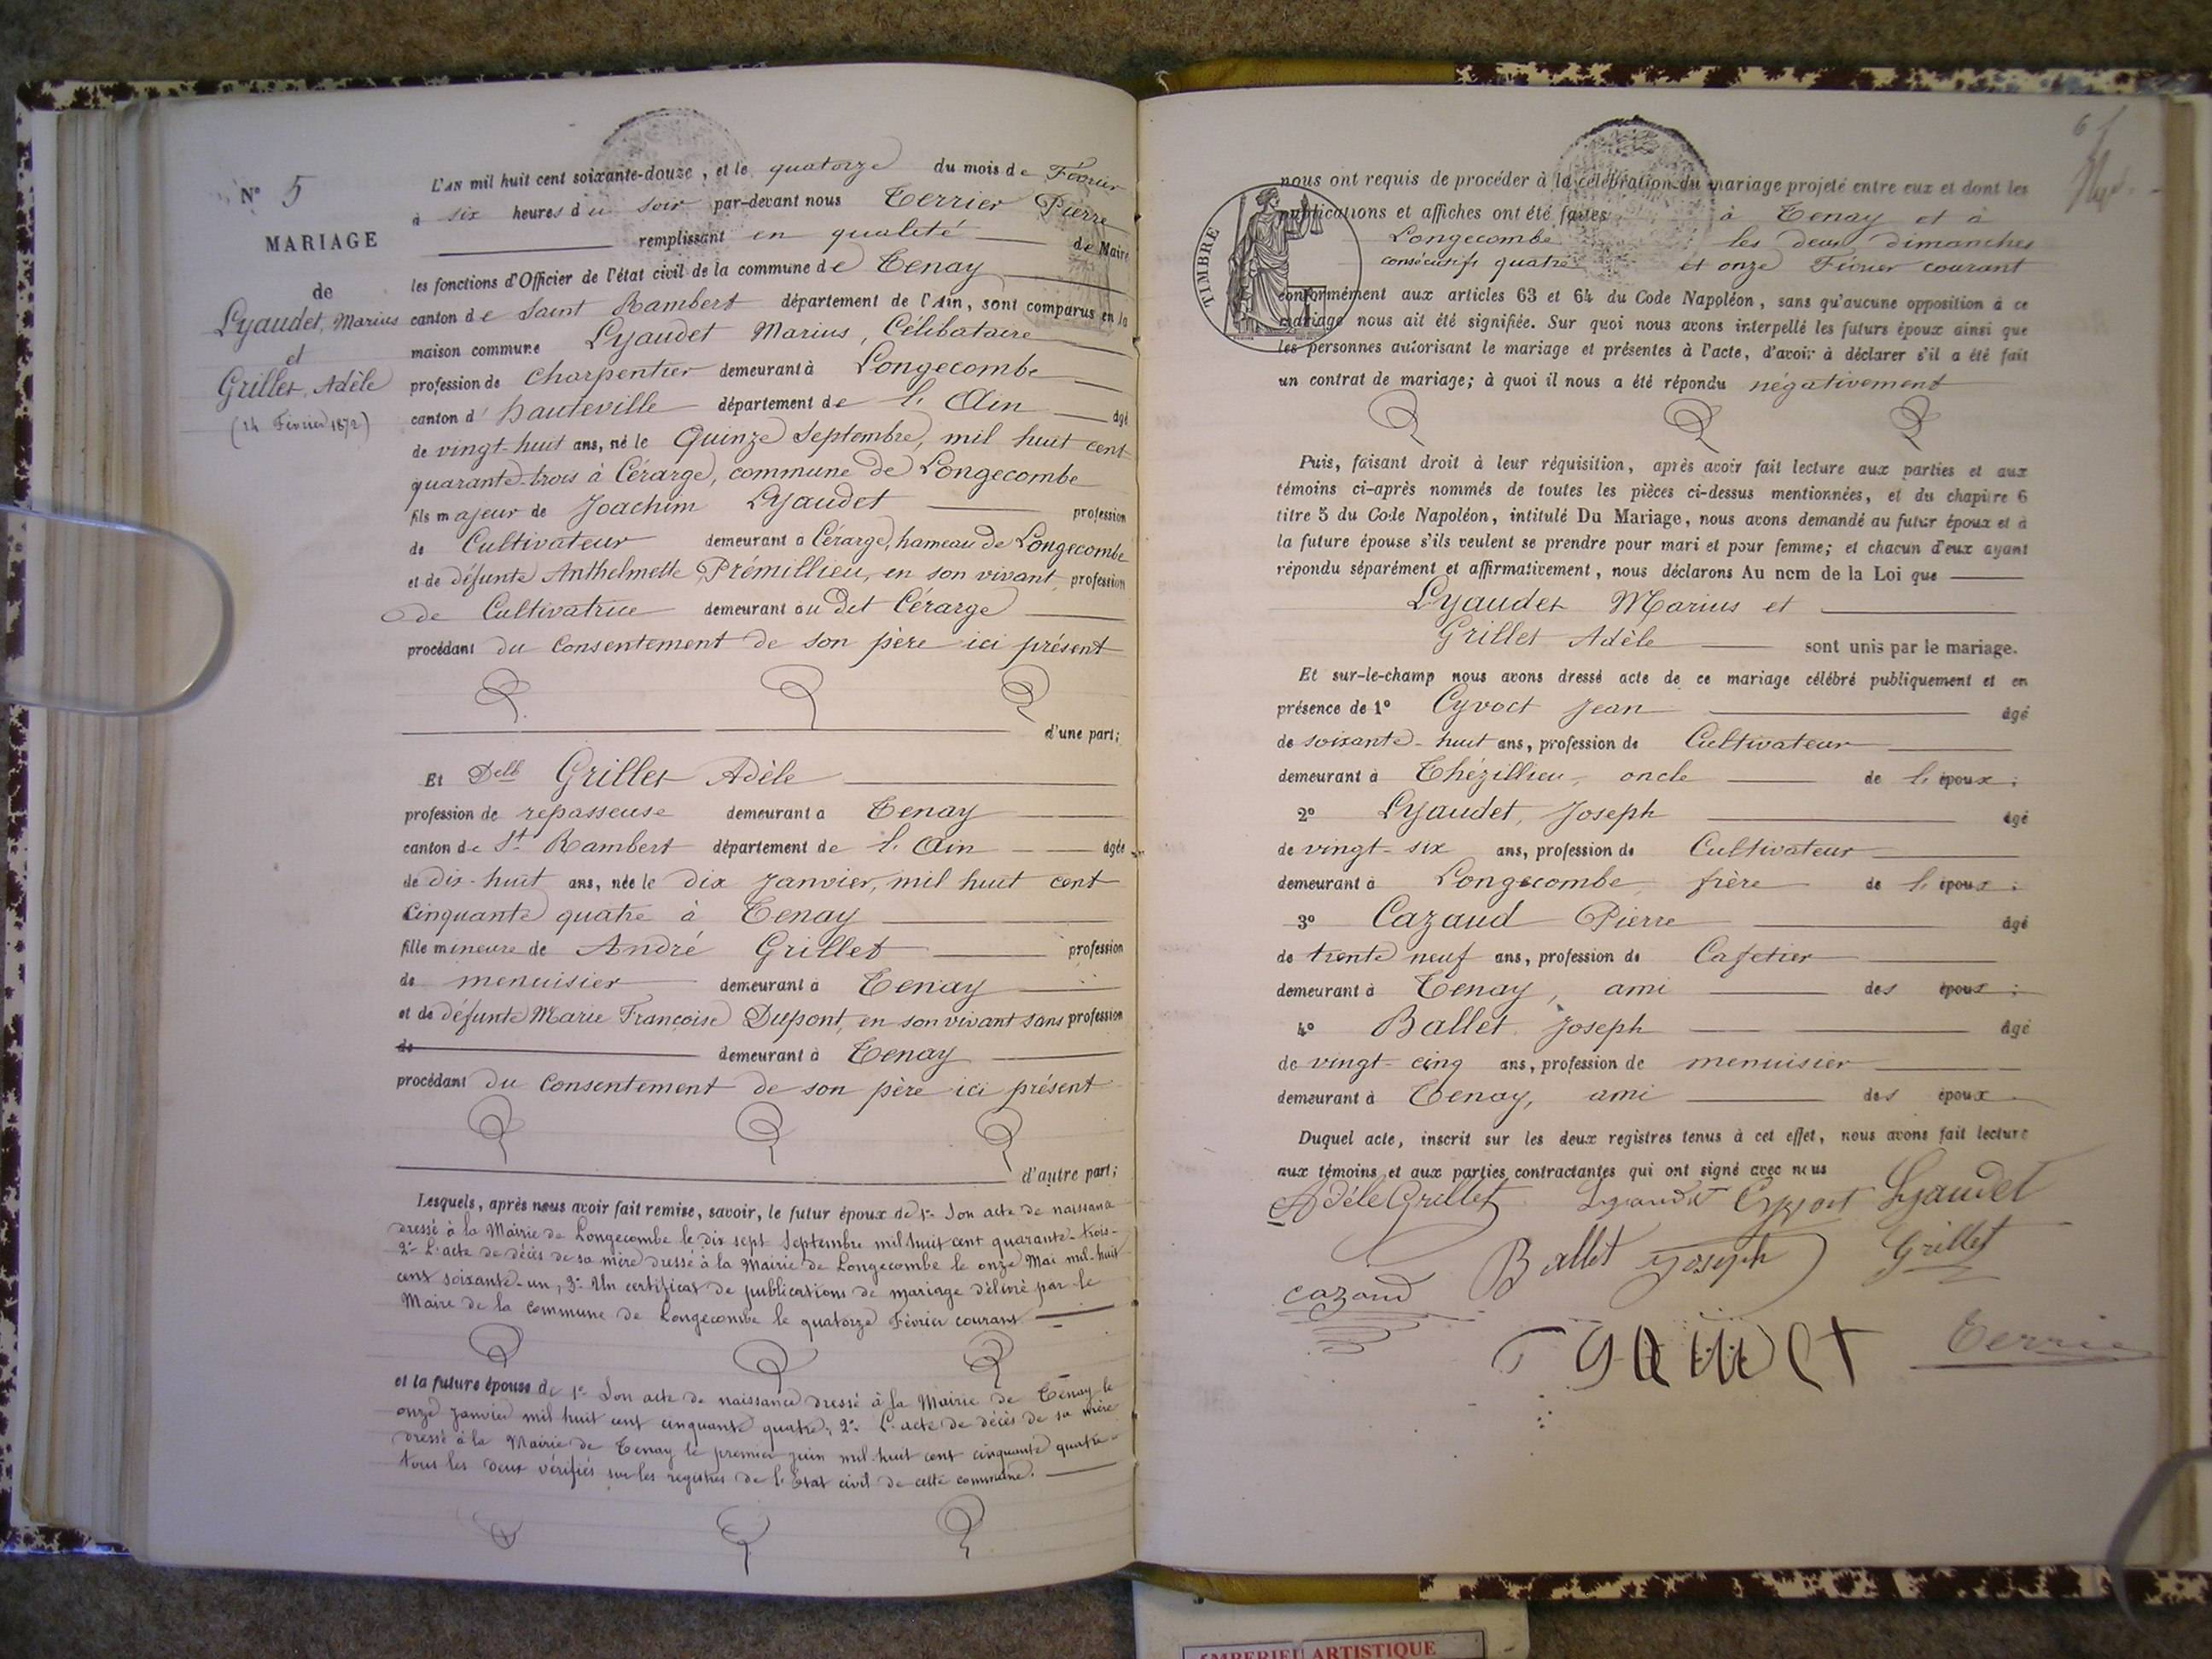 N° 5
MARIAGE
de
Lyaudet, Marius
et
Grillet, Adèle
(14 Février 1872)
L'AN mil huit cent soixante-douze, et le quatorze du mois de Février
à six heures du soir par-devant nous Terrier Pierre
remplissant en qualité de Maire
les fonctions d'Officier de l'état civil de la commune de Tenay
canton de Saint Rambert département de l'Ain, sont comparus en la
maison commune Lyaudet Marius, Célibataire
profession de charpentier demeurant à Longecombe
canton d'hauteville département de l'Ain âgé
de vingt-huit ans, né le Quinze Septembre, mil huit cent
quarante-trois à Cérarge, commune de Longecombe
fils majeur de Joachim Lyaudet profession
de Cultivateur demeurant à Cérarge, hameau de Longecombe
et de défunte Anthelmette Prémillieu, en son vivant profession
de Cultivatrice demeurant au dit Cérarge
procédant du consentement de son père ici présent
d'une part;
Et Delle Grillet Adèle
profession de repasseuse demeurant à Tenay
canton de St Rambert département de l'Ain âgée
de dix-huit ans, née le dix Janvier, mil huit cent
Cinquante quatre à Tenay
fille mineure de André Grillet profession
de menuisier demeurant à Tenay
et de défunte Marie Françoise Dupont, en son vivant sans profession
de demeurant à Tenay
procédant du consentement de son père ici présent
d'autre part;
Lesquels, après nous avoir fait remise, savoir, le futur époux de 1° Son acte de naissance
dressé à la Mairie de Longecombe le dix sept Septembre mil huit cent quarante-trois-
2° L'acte de décès de sa mère dressé à la Mairie de Longecombe le onze Mai mil-huit
cent soixante-un, 3° Un certificat de publications de mariage délivré par le
Maire de la commune de Longecombe le quatorze Février courant
et la future épouse de 1° Son acte de naissance dressé à la Mairie de Tenay le
onze Janvier mil huit cent cinquante quatre; 2° L'acte de décès de sa mère
dressé à la Mairie de Tenay le premier juin mil-huit cent cinquante quatre
tous les deux vérifiés sur les registres de l'Etat civil de cette commune.
61
nous ont requis de procéder à la célébration du mariage projeté entre eux et dont les
publications et affiches ont été faites à Tenay et à
Longecombe les deux dimanches
consécutifs quatre et onze Février courant
TIMBRE
conformément aux articles 63 et 64 du Code Napoléon, sans qu'aucune opposition à ce
mariage nous ait été signifiée. Sur quoi nous avons interpellé les futurs époux ainsi que
les personnes autorisant le mariage et présentes à l'acte, d'avoir à déclarer s'il a été fait
un contrat de mariage; à quoi il nous a été répondu négativement
Puis, faisant droit à leur réquisition, après avoir fait lecture aux parties et aux
témoins ci-après nommés de toutes les pièces ci-dessus mentionnées, et du chapitre 6
titre 5 du Code Napoléon, intitulé Du Mariage, nous avons demandé au futur époux et à
la future épouse s'ils veulent se prendre pour mari et pour femme; et chacun d'eux ayant
répondu séparément et affirmativement, nous déclarons Au nom de la Loi que
Lyaudet Marius et
Grillet Adèle sont unis par le mariage.
Et sur-le-champ nous avons dressé acte de ce mariage célébré publiquement et en
présence de 1° Cyvoct Jean âgé
de soixante-huit ans, profession de Cultivateur
demeurant à Thézillieu, oncle de l'époux;
2° Lyaudet, Joseph âgé
de vingt-six ans, profession de Cultivateur
demeurant à Longecombe frère de l'époux;
3° Cazaud Pierre âgé
de trente neuf ans, profession de Cafetier
demeurant à Tenay, ami des époux;
4° Ballet Joseph âgé
de vingt-cinq ans, profession de menuisier
demeurant à Tenay, ami des époux
Duquel acte, inscrit sur les deux registres tenus à cet effet, nous avons fait lecture
aux témoins et aux parties contractantes qui ont signé avec nous
Adéle Grillet Lyaudet Cyvoct Lyaudet
Ballet Joseph Grillet
cazaud
Terrier
AMBERIEU ARTISTIQUE